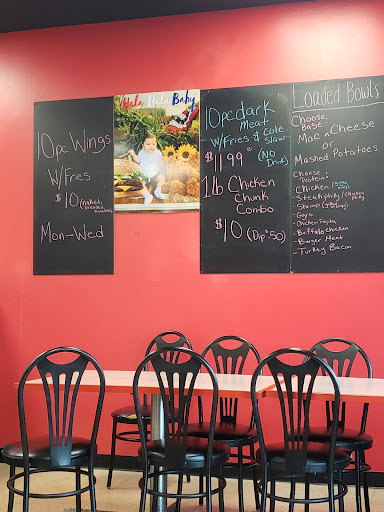 10pc Wings
W/Fries
$10 (naked,
breaded,
Mon-Wed
Hala Hala Baby
10pc dark
Meat
W/Fries & Cole
Slaw
$11.99 (NO
Drink)
1lb Chicken
Chunk
Combo
$10 (Dip .50)
Loaded Bowls
Choose
Base:
Mac n Cheese
or
Mashed Potatoes
Choose
Protein:
- Chicken
- Steak philly/chicken
philly
- Shrimp
- Gyro
- Chicken Fajita
- Buffalo chicken
- Burger Meat
- Turkey Bacon